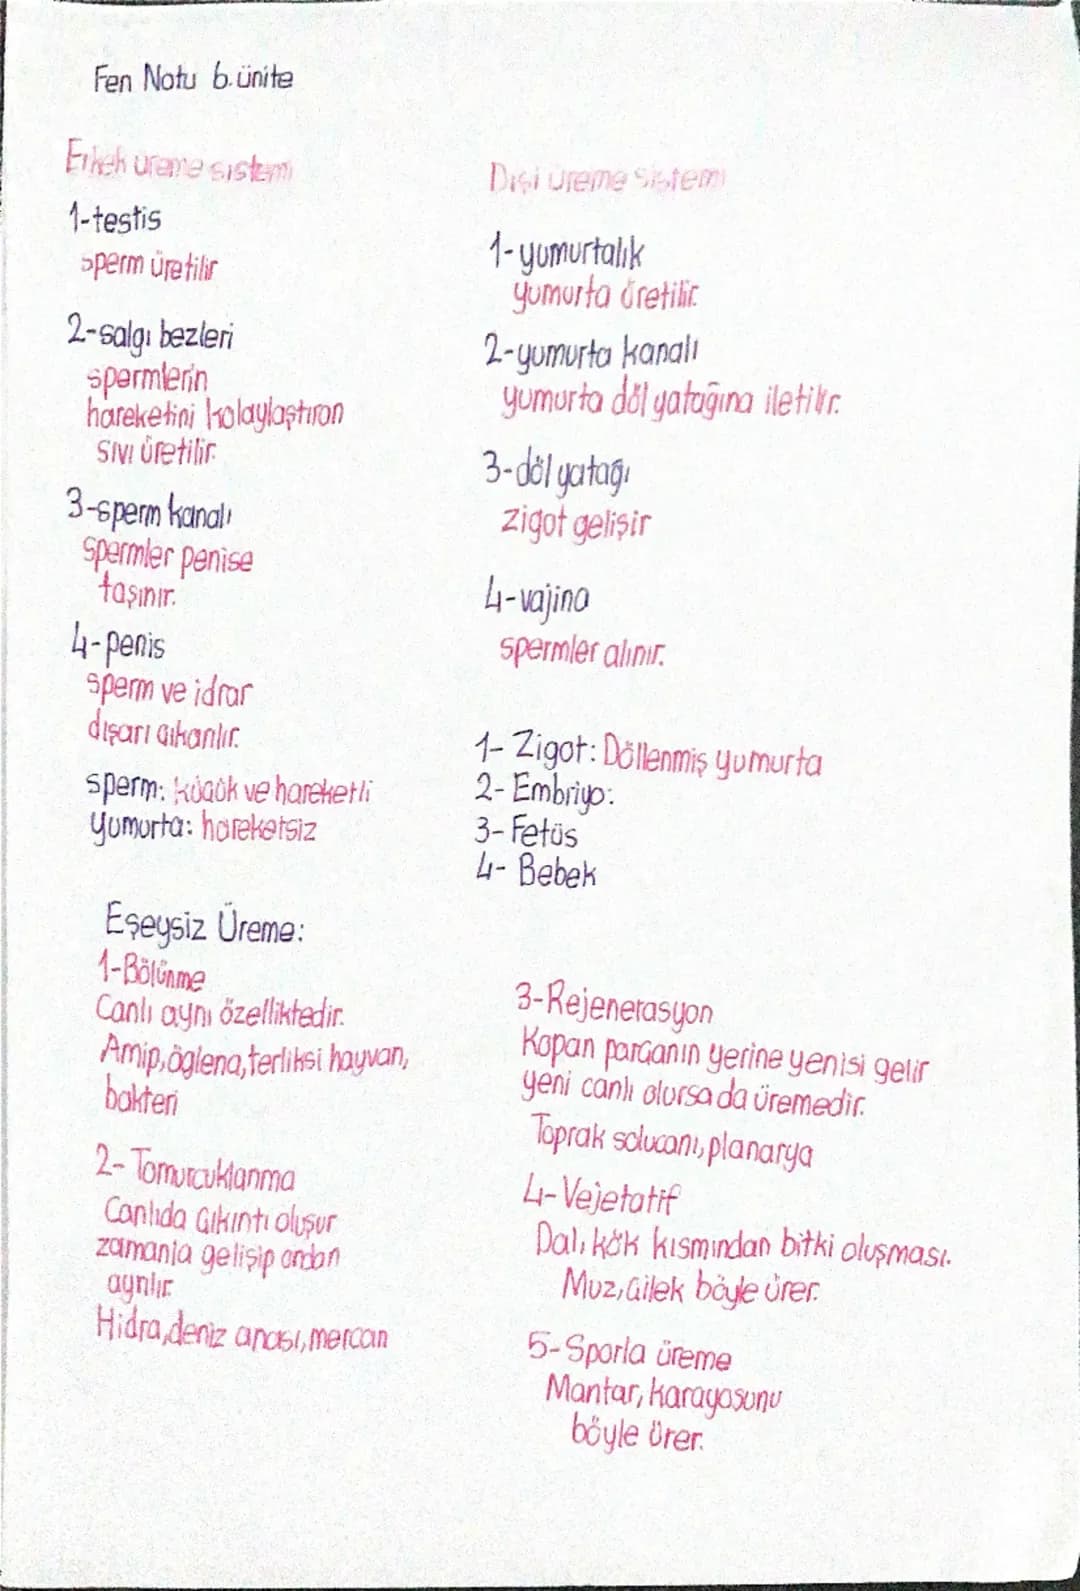 Fen Notu 6.ünite
Erkek üreme sistemi
1-testis
sperm üretilir
2-salgı bezleri
spermlerin
hareketini kolaylaştıran
sıvı üretilir.
3-sperm kanalı
spermler penise
taşınır.
4-penis
sperm ve idrar
dışarı çıkarılır.
sperm: küçük ve hareketli
yumurta: hareketsiz
Dişi üreme sistemi
1-yumurtalık
yumurta üretilir.
2-yumurta kanalı
yumurta döl yatağına iletilir.
3-döl yatağı
zigot gelişir
4-vajina
spermler alınır.
1- Zigot: Döllenmiş yumurta
2- Embriyo:
3- Fetüs
4- Bebek
Eşeysiz Üreme:
1-Bölünme
Canlı aynı özelliktedir.
Amip,öglena,terliksi hayvan,
bakteri
2- Tomurcuklanma
Canlıda çıkıntı oluşur
zamanla gelişip ondan
ayrılır.
Hidra,deniz anası,mercan
3-Rejenerasyon
Kopan parçanın yerine yenisi gelir
yeni canlı olursa da üremedir.
Toprak solucanı,planarya
4-Vejetatif
Dal, kök kısmından bitki oluşması.
Muz,çilek böyle ürer.
5-Sporla üreme
Mantar, karayosunu
böyle ürer.